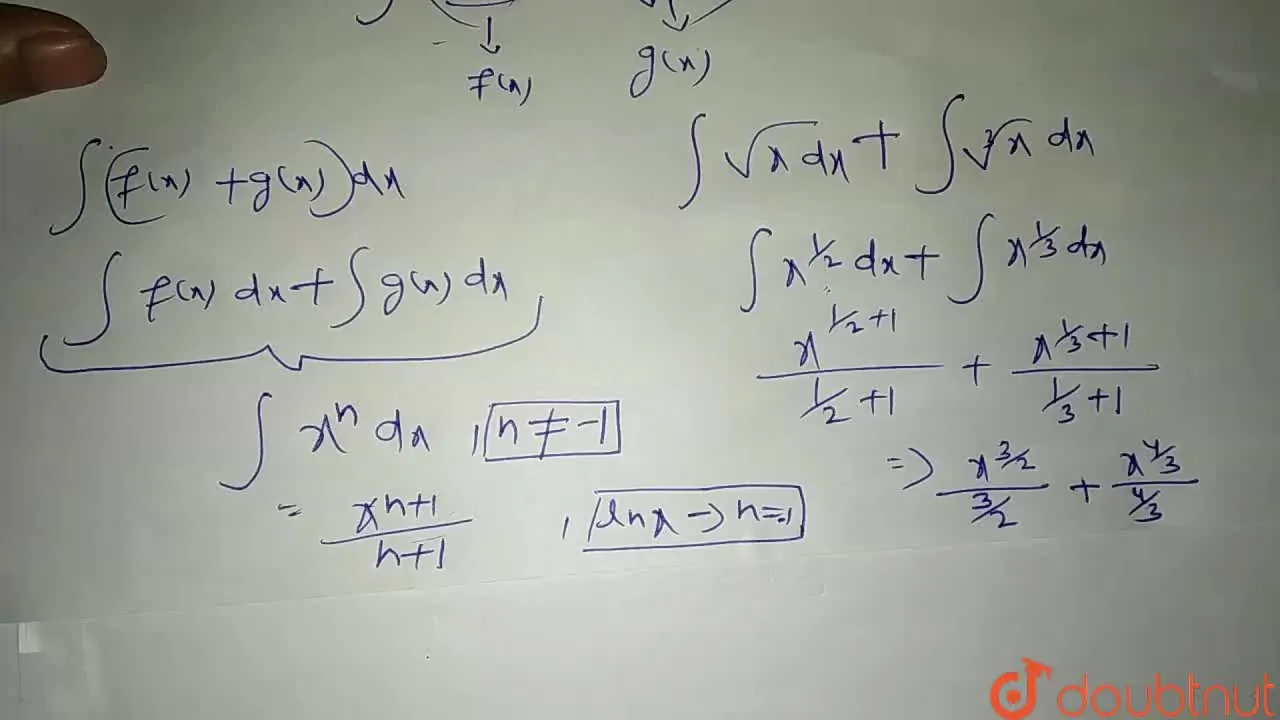 ∫
f(x) g(x)
∫(f(x) + g(x)) dx
∫ f(x) dx + ∫ g(x) dx
∫ xⁿ dx , n ≠ -1
= xⁿ⁺¹/n+1 , lnx → n=-1
∫ √x dx + ∫ ∛x dx
∫ x^1/2 dx + ∫ x^1/3 dx
x^1/2+1 / 1/2+1 + x^1/3+1 / 1/3+1
=> x^3/2 / 3/2 + x^4/3 / 4/3
doubtnut